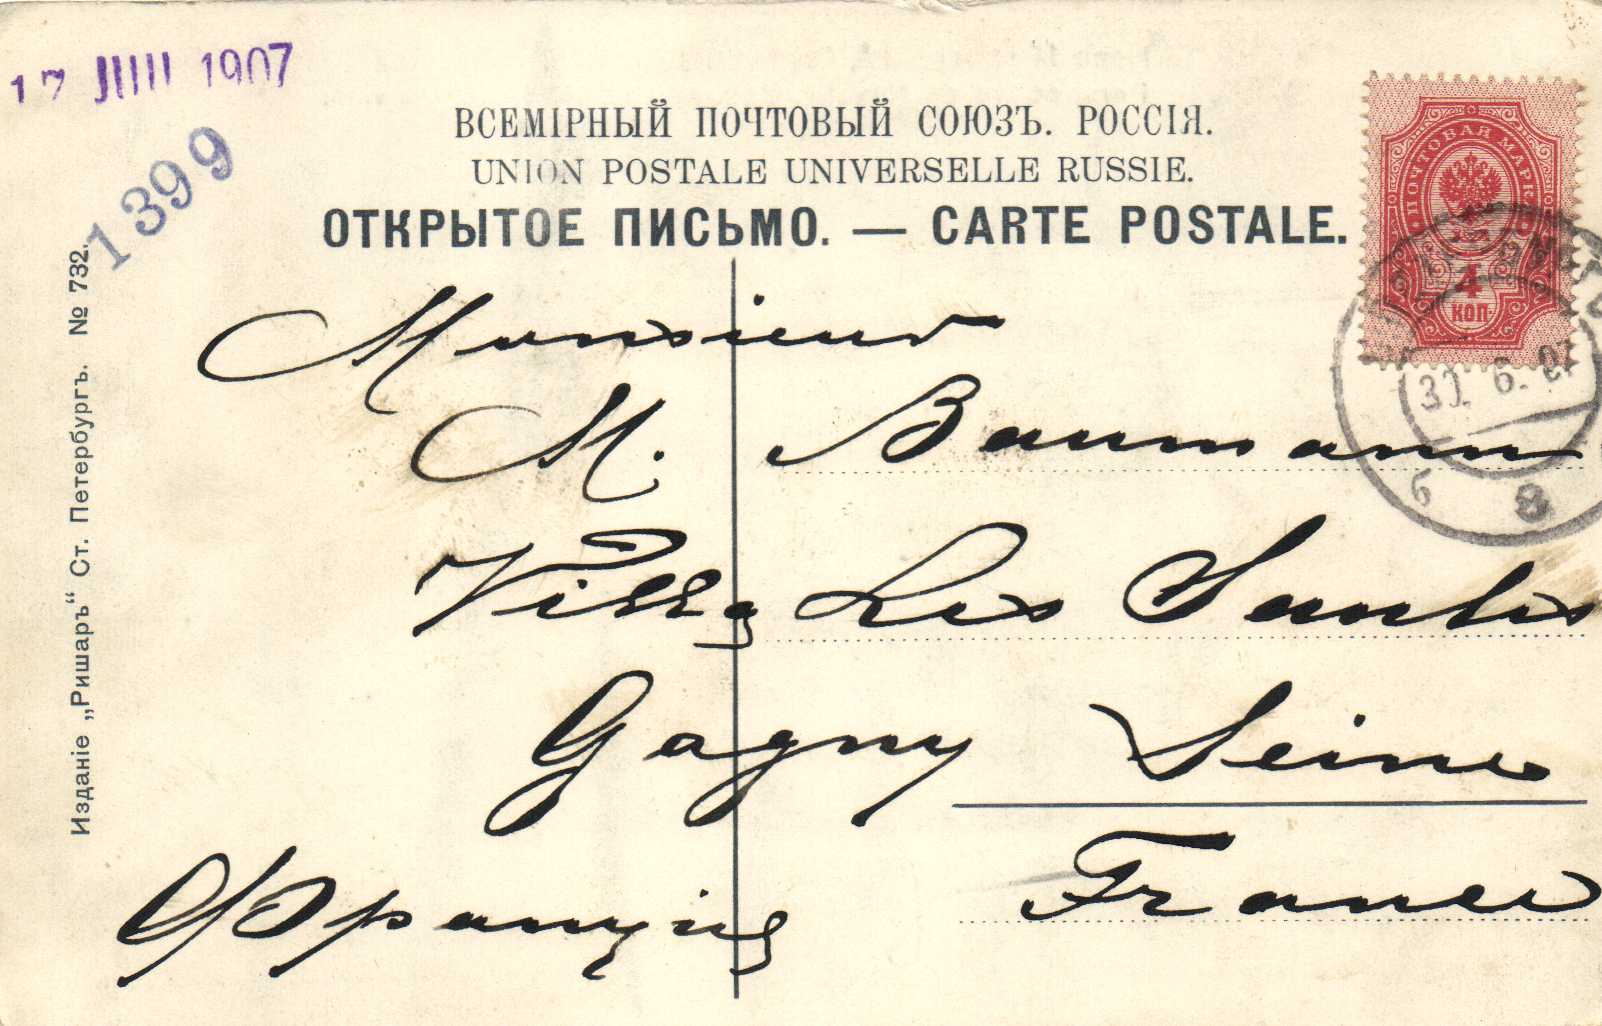 17 JUIL 1907
1399
ВСЕМІРНЫЙ ПОЧТОВЫЙ СОЮЗЪ. РОССІЯ.
UNION POSTALE UNIVERSELLE RUSSIE.
ОТКРЫТОЕ ПИСЬМО. — CARTE POSTALE.
ПОЧТОВАЯ МАРКА
4
КОП
30. 6. 07
8
Monsieur
M. Baumann
Villa Les Saules
Gagny Seine
France
Франція
Изданіе „Ришаръ“ Ст. Петербургъ. № 732.